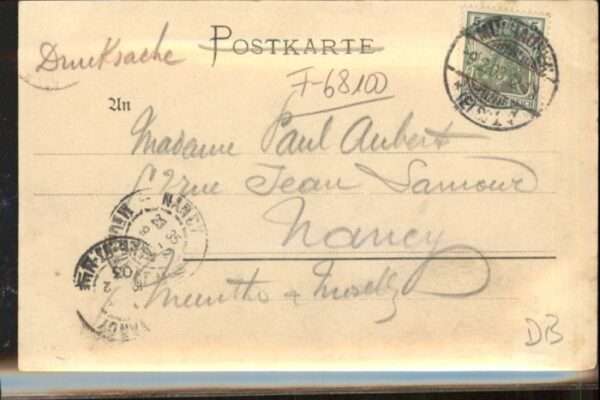 Drucksache
POSTKARTE
F-68100
An
Madame Paul Aubert
rue Jean Lamour
Nancy
Meurthe & Moselle
NANCY
DB